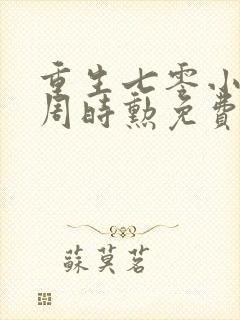 重生七零小
周時勲免費
蘇莫茗